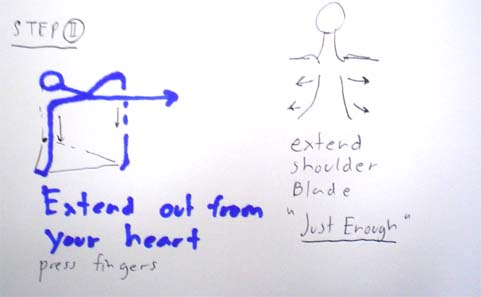 STEP II
Extend out from
your heart
press fingers
extend
shoulder
Blade
"Just Enough"